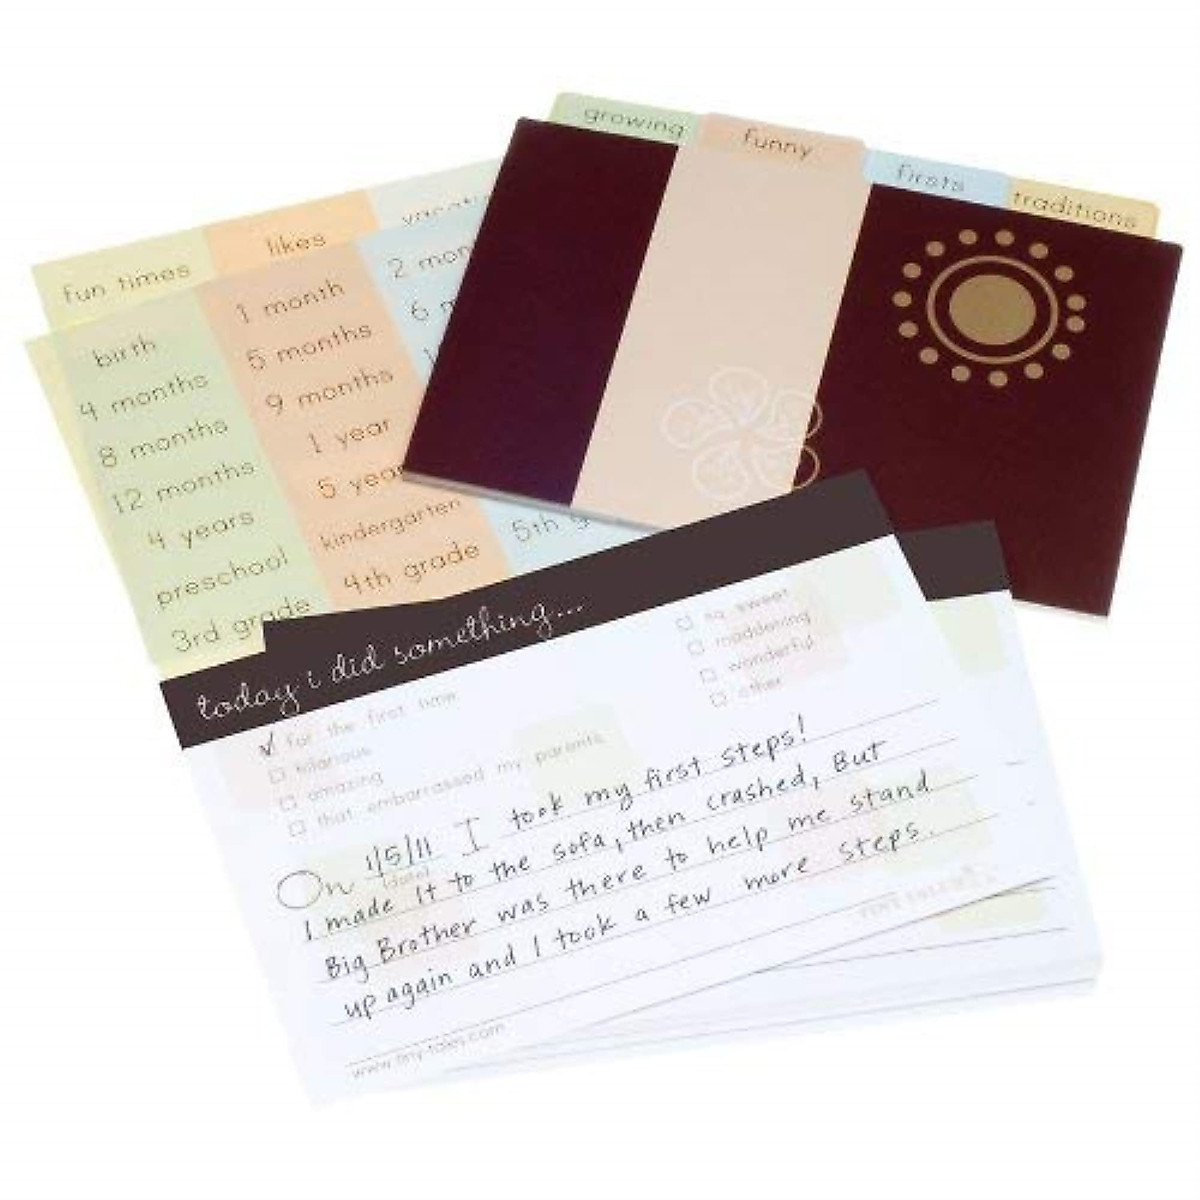 growing
funny
firsts
traditions
fun times
likes
birth
1 month
2 mon
4 months
5 months
6 m
8 months
9 months
12 months
1 year
4 years
5 year
preschool
kindergarten
5th g
3rd grade
4th grade
today i did something...
for the first time
hilarious
amazing
that embarrassed my parents
so sweet
maddening
wonderful
other
On 1/5/11 I took my first steps!
(date)
I made it to the sofa, then crashed, But
Big Brother was there to help me stand
up again and I took a few more steps.
www.tiny-tales.com